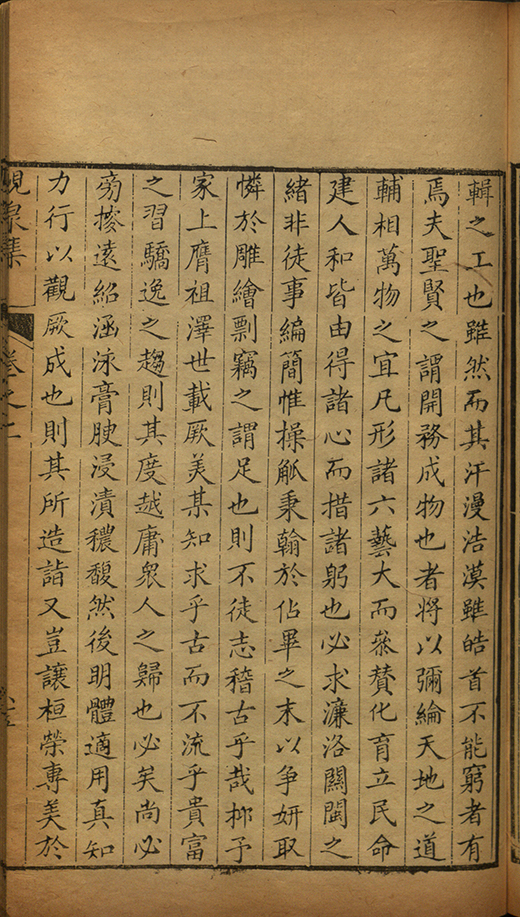 輯之工也雖然而其汗漫浩漠雖皓首不能窮者有
焉夫聖賢之謂開務成物也者將以彌綸天地之道
輔相萬物之宜凡形諸六藝大而叅賛化育立民命
建人和皆由得諸心而措諸躬也必求濂洛關閩之
緒非徒事編簡惟操觚秉翰於佔畢之末以争妍取
憐於雕繪剽竊之謂足也則不徒志稽古乎哉抑予
家上膺祖澤世載厥美某知求乎古而不流乎貴富
之習驕逸之趨則其度越庸衆人之歸也必矣尚必
旁摉遠紹涵泳膏腴浸漬穠馥然後明體適用真知
力行以觀厥成也則其所造詣又豈讓桓榮專美於
峴泉集 卷之二